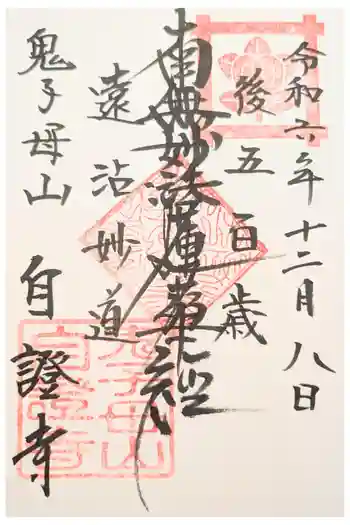 令和六年十二月八日
後五百歳
南無妙法蓮華経
遠沾妙道
鬼子母山
自證寺
鬼子母山
自證寺